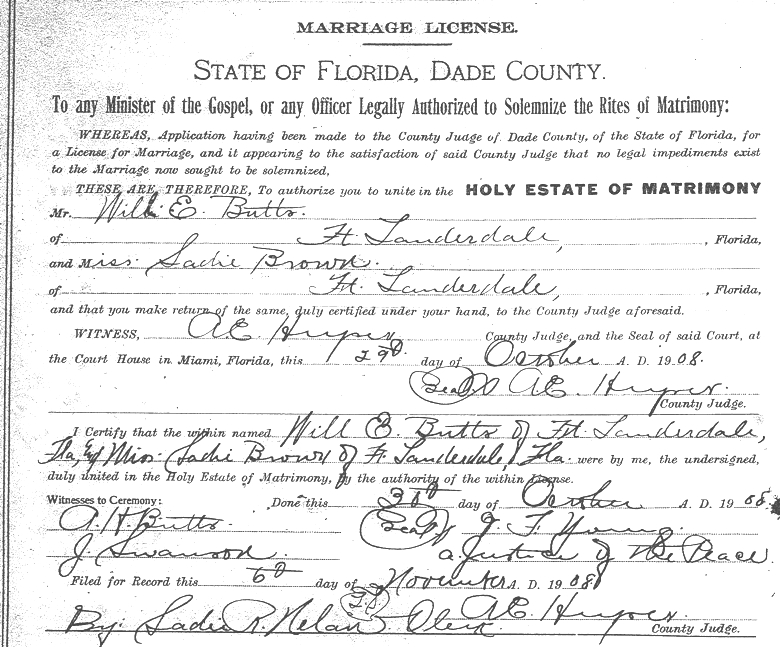 MARRIAGE LICENSE.
STATE OF FLORIDA, DADE COUNTY.
To any Minister of the Gospel, or any Officer Legally Authorized to Solemnize the Rites of Matrimony:
WHEREAS, Application having been made to the County Judge of Dade County, of the State of Florida, for
a License for Marriage, and it appearing to the satisfaction of said County Judge that no legal impediments exist
to the Marriage now sought to be solemnized,
THESE ARE, THEREFORE, To authorize you to unite in the HOLY ESTATE OF MATRIMONY
Mr. Will E. Butts.
of Ft. Lauderdale, , Florida,
and Miss. Sadie Brown.
of Ft. Lauderdale, , Florida,
and that you make return of the same, duly certified under your hand, to the County Judge aforesaid.
WITNESS, A.E. County Judge, and the Seal of said Court, at
the Court House in Miami, Florida, this 29th day of October A. D. 1908.
(Seal) A.E.
County Judge.
I Certify that the within named Will E. Butts of Ft. Lauderdale,
Fla, & Miss. Sadie Brown of Ft. Lauderdale, Fla. were by me, the undersigned,
duly united in the Holy Estate of Matrimony, by the authority of the within License.
Witnesses to Ceremony: Done this day of October A. D. 1908.
Butts. (Seal) J. F. Young
J. Swanson. a Justice of the Peace.
Filed for Record this 6th day of November A. D. 1908
A.E.
By: Sadie R. Nelan. Clerk. County Judge.